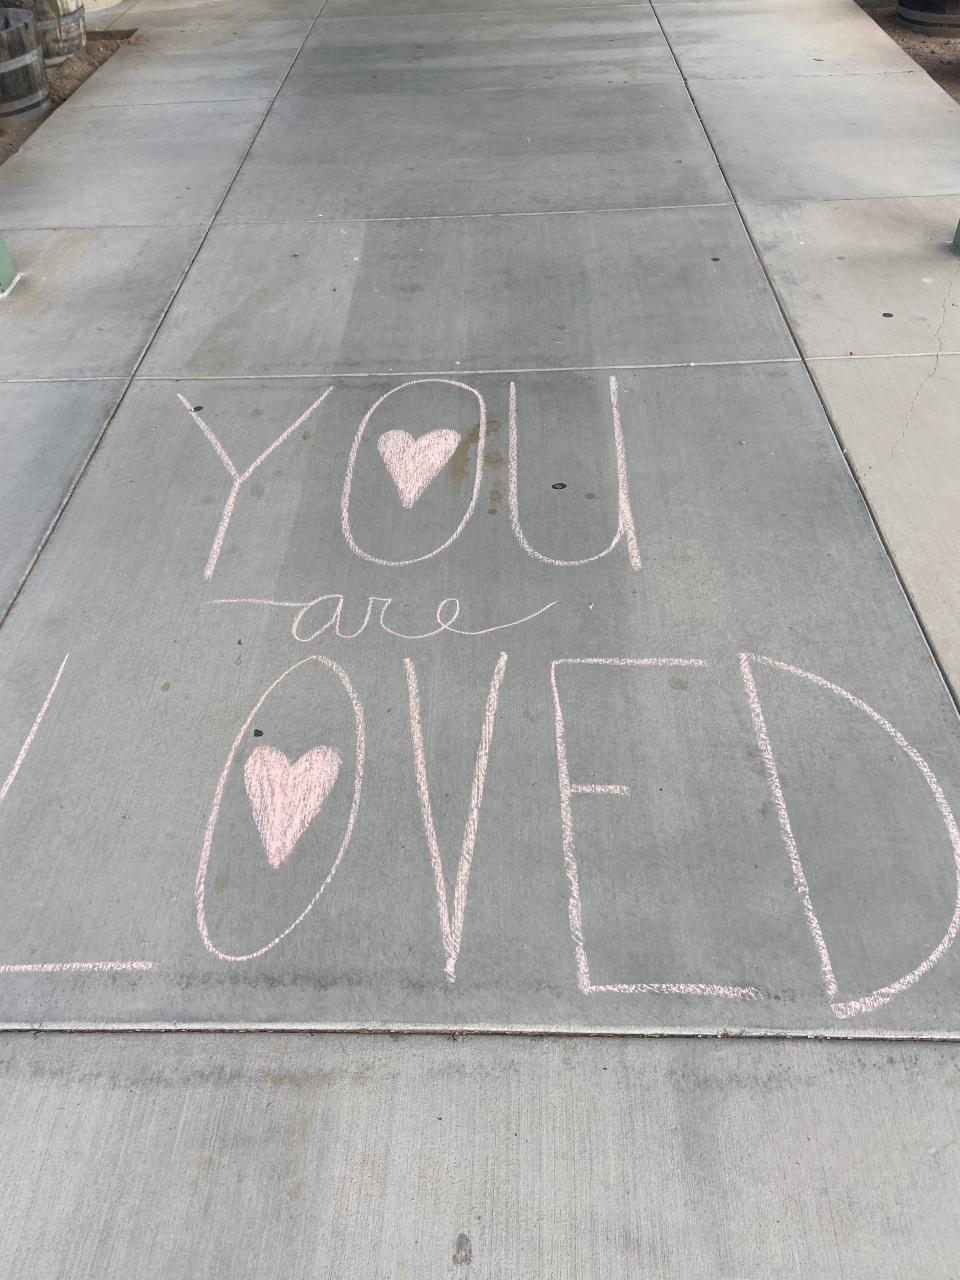 YOU
are
LOVED